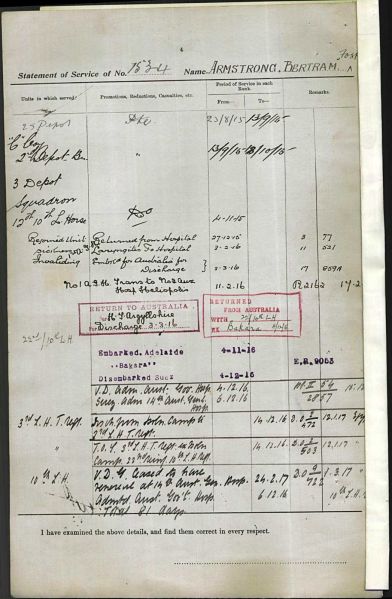 4
Statement of Service of No. 1534 Name ARMSTRONG. BERTRAM.
Units in which served. Promotions, Reductions, Casualties, etc. Period of Service in each Rank. Remarks.
From— To—
23 Depot Pte 23/8/15 13/9/15
"C" Coy
2nd Depot Bn. " 13/9/15
3 Depot
Squadron
12th 10th L. Horse 4-11-15
Rejoined Unit Returned from Hospital 27-12-15 5 77
3-2-16 11 521
Invaliding Embkd for Australia for
Discharge 3-3-16 17 859A
No 1 A.G.H. Trans to No 2 Aux
Hosp Heliopolis 11.2.16 R2162 17.2
RETURN TO AUSTRALIA
Argyllshire
Discharge 3-3-16
RETURNED
FROM AUSTRALIA
WITH 22/10th L.H
Bakara
22nd/10th L.H.
Embarked, Adelaide 4-11-16
"Bakara" E.R. 9053
Disembarked Suez 4-12-16
V.D. Adm. Aust. Gov. Hosp 4.12.16
Suez Adm 14th Aust. Genl. Hosp. 6.12.16 2857
3rd L.H.T. Regt. Camp to 14.12.16 D.O. 2/472 12.1.17
3rd L H T. Regt.
T.O.S. 3rd L.H.T. Regt. 14.12.16 D.O. 2/503 12.1.17
Camp 22nd Reinf. 10th L.H. Regt.
10th L.H. V.D.G. Ceased to have 24.2.17 D.O. 722 1.3.17
venereal at 14th Aust. Gen. Hosp.
Admtd Aust. Gov't Hosp 6.12.16 10th L.H.
Total 81 days
I have examined the above details, and find them correct in every respect.